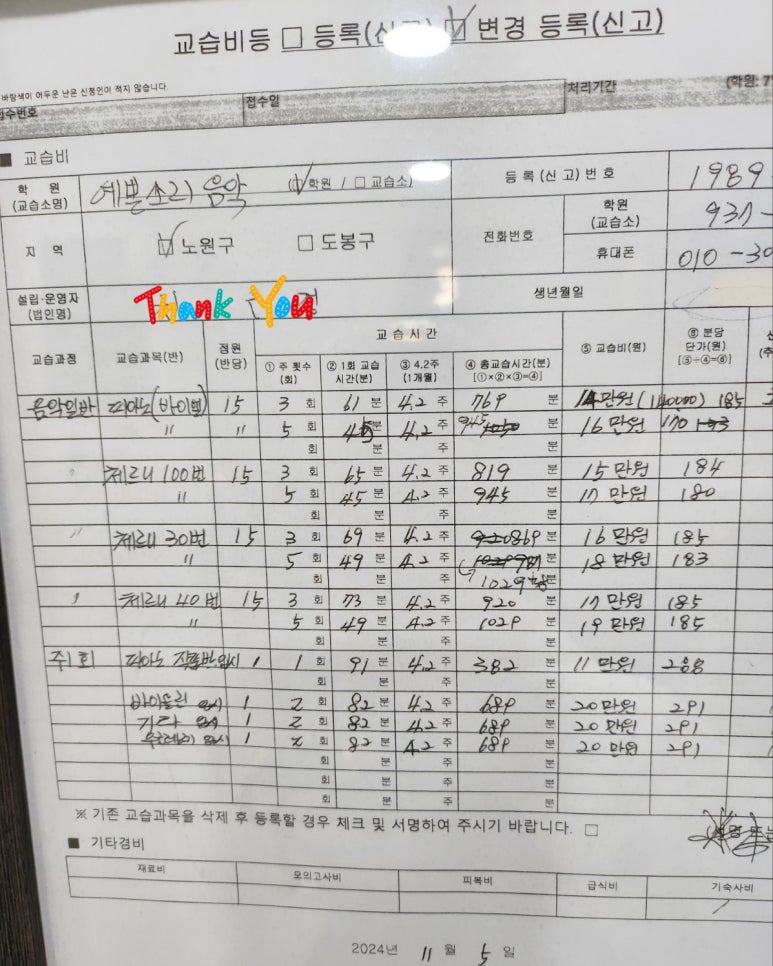 교습비등 □ 등록(신 ☑ 변경 등록(신고)
바탕색이 어두운 난은 신청인이 적지 않습니다.
접수번호 접수일 처리기간 (학원: 7
■ 교습비
학 원 (교습소명) 예쁜소리 음악 (☑학원 / □ 교습소) 등록(신고)번호 1989-
지 역 ☑ 노원구 □ 도봉구 전화번호 학원 (교습소) 937-
휴대폰 010-30
설립·운영자 (법인명) Thank You 생년월일
교습과정 교습과목(반) 정원 (반당) 교 습 시 간 ⑤ 교습비(원) ⑥ 분당 단가(원) [⑤÷④=⑥]
① 주 횟수 (회) ② 1회 교습 시간(분) ③ 4.2주 (1개월) ④ 총교습시간(분) [①×②×③=④]
음악일반 피아노(바이엘) 15 3 회 61 분 4.2 주 769 분 14만원(140000) 185
〃 〃 5 회 45 분 4.2 주 945 분 16만원 170
회 분 주 분
〃 체르니 100번 15 3 회 65 분 4.2 주 819 분 15만원 184
〃 5 회 45 분 4.2 주 945 분 17만원 180
회 분 주 분
〃 체르니 30번 15 3 회 69 분 4.2 주 869 분 16만원 185
〃 5 회 49 분 4.2 주 분 18만원 183
회 분 주 1029 분
〃 체르니 40번 15 3 회 73 분 4.2 주 920 분 17만원 185
〃 5 회 49 분 4.2 주 1029 분 19만원 185
회 분 주 분
주1회 피아노 1 1 회 91 분 4.2 주 382 분 11만원 288
회 분 주 분
바이올린 1 2 회 82 분 4.2 주 689 분 20만원 291
기타 1 2 회 82 분 4.2 주 689 분 20만원 291
우쿨렐레 1 2 회 82 분 4.2 주 689 분 20만원 291
회 분 주 분
회 분 주 분
회 분 주 분
※ 기존 교습과목을 삭제 후 등록할 경우 체크 및 서명하여 주시기 바랍니다. □ (서명 또는
■ 기타경비
재료비 모의고사비 피복비 급식비 기숙사비
2024년 11 월 5 일